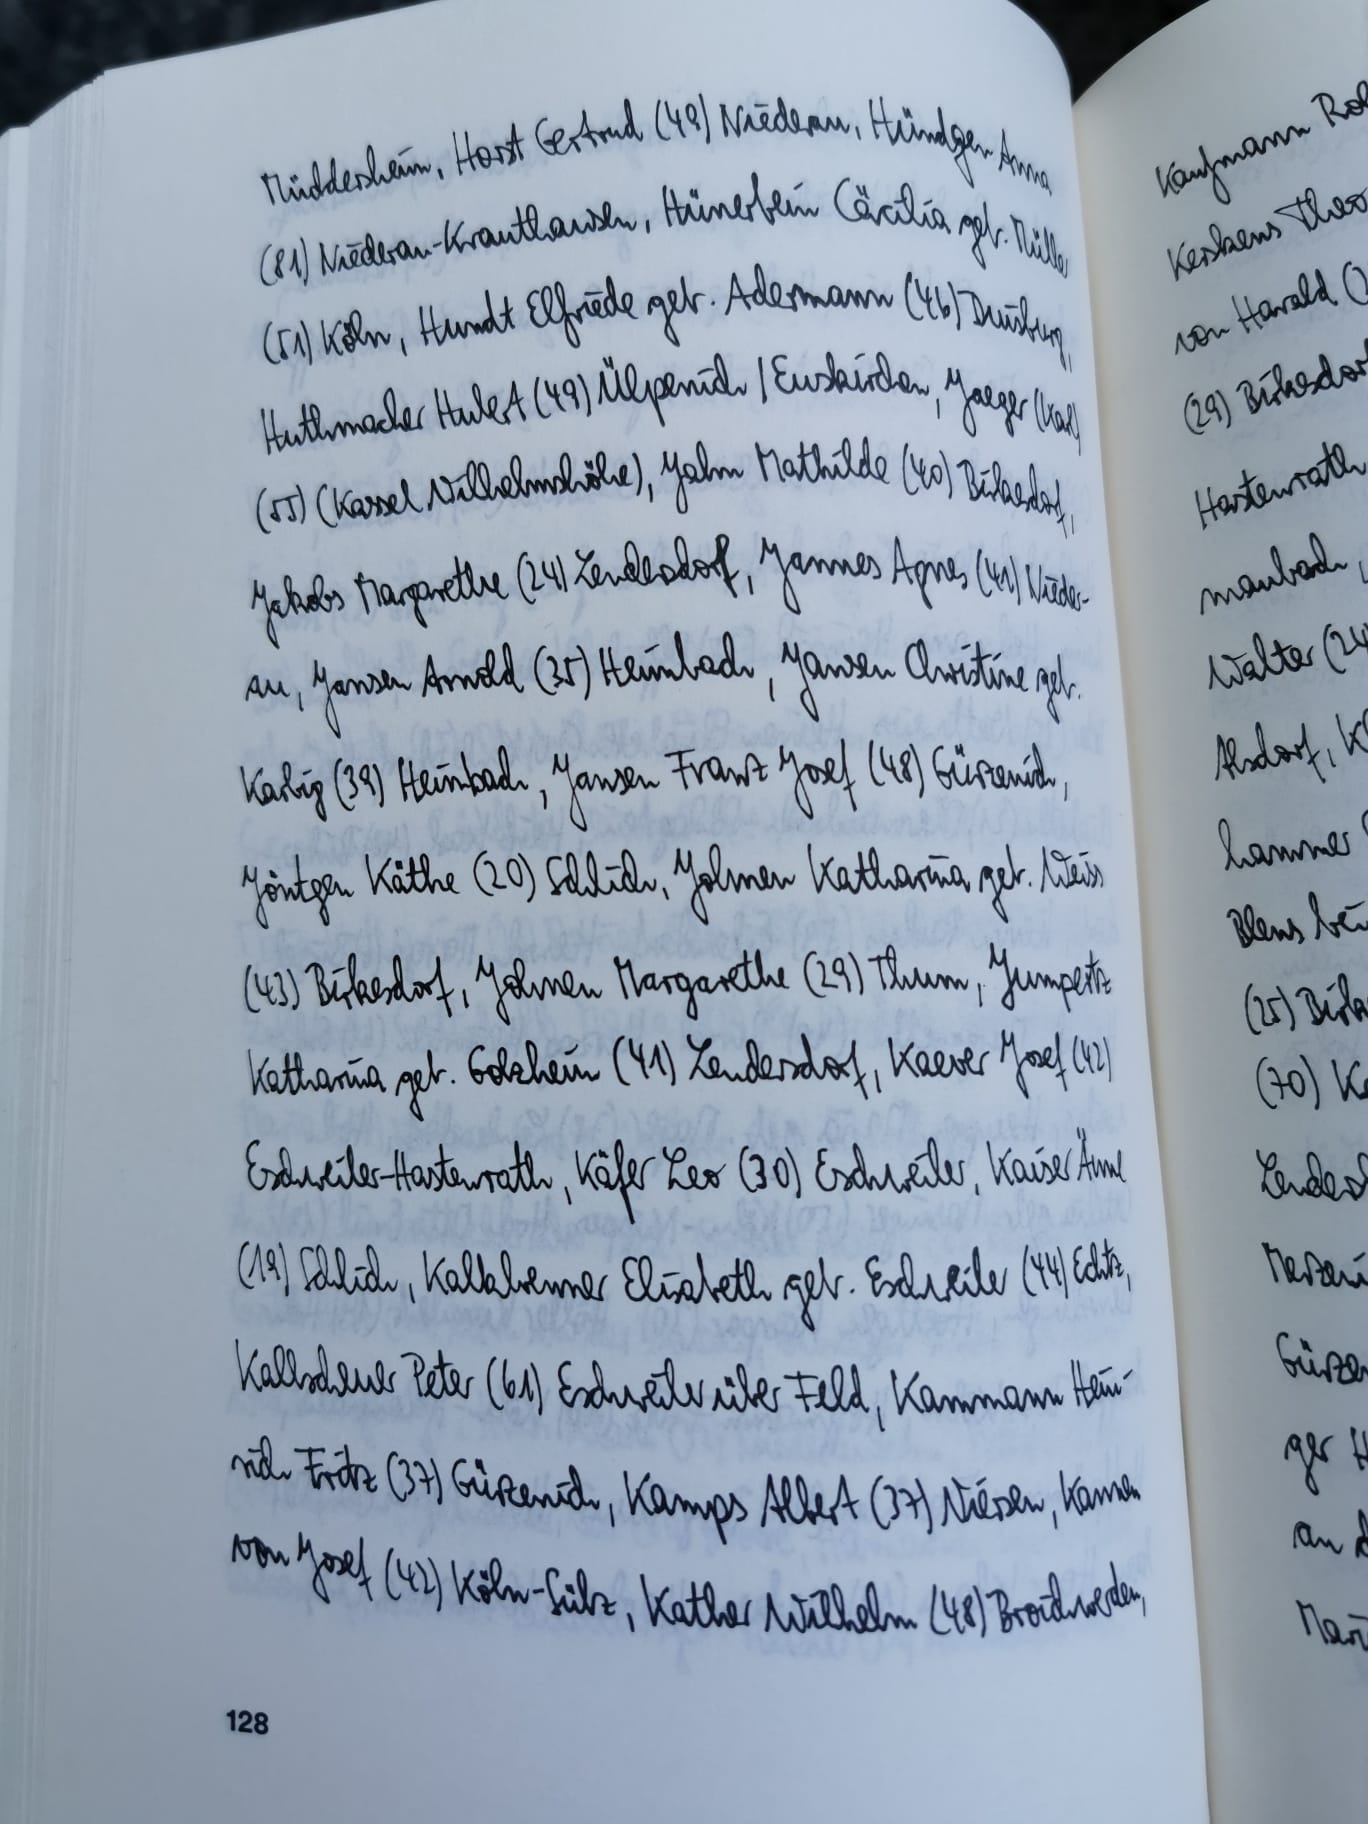 Müddersheim, Horst Gertrud (49) Niederau, Hündgen Anna
(81) Niederau-Krauthausen, Hünerbein Cäcilia geb. Müller
(51) Köln, Hundt Elfriede geb. Adermann (46) Duisburg,
Huthmacher Hubert (49) Ülpenich / Euskirchen, Jaeger (Karl)
(55) (Kassel Wilhelmshöhe), Jahn Mathilde (40) Birkesdorf,
Jakobs Margarethe (24) Lendersdorf, Jannes Agnes (41) Nieder-
au, Jansen Arnold (35) Heimbach, Jansen Christine geb.
Karbig (39) Heimbach, Jansen Franz Josef (48) Gürzenich,
Jöntgen Käthe (20) Schlich, Johnen Katharina geb. Weiss
(43) Birkesdorf, Johnen Margarethe (29) Thum, Jumpertz
Katharina geb. Golzheim (41) Lendersdorf, Kaever Josef (42)
Eschweiler-Hastenrath, Käfer Leo (30) Eschweiler, Kaiser Änne
(19) Schlich, Kalkbrenner Elisabeth geb. Eschweiler (44) Echtz,
Kallscheuer Peter (61) Eschweiler über Feld, Kammann Hein-
rich Fritz (37) Gürzenich, Kamps Albert (37) Niersen, Kannen
von Josef (42) Köln-Sülz, Kather Wilhelm (48) Broichweiden,
128
Kaufmann
Kerskens Theo
von Harald
(29) Birkesdorf
Hastenrath
maubach,
Walter (24
Alsdorf,
hammer
Blens bei
(25)
(70)
an